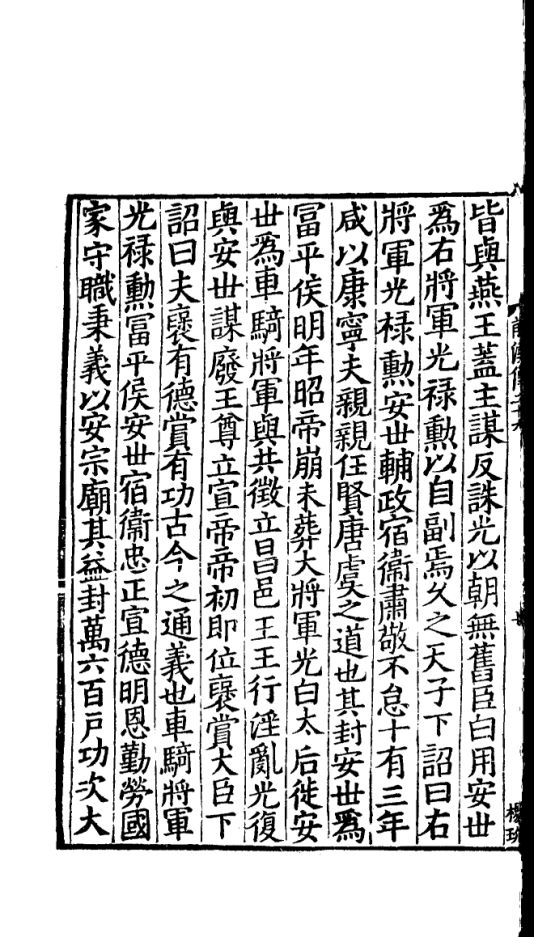 皆與燕王蓋主謀反誅光以朝無舊臣白用安世
爲右將軍光祿勲以自副焉久之天子下詔曰右
將軍光祿勲安世輔政宿衞肅敬不怠十有三年
咸以康寧夫親親任賢唐虞之道也其封安世爲
冨平侯明年昭帝崩未葬大將軍光白太后徙安
世爲車騎將軍與共徵立昌邑王王行淫亂光復
與安世謀廢王尊立宣帝帝初即位襃賞大臣下
詔曰夫襃有德賞有功古今之通義也車騎將軍
光祿勲冨平侯安世宿衞忠正宣德明恩勤勞國
家守職秉義以安宗廟其益封萬六百戸功次大